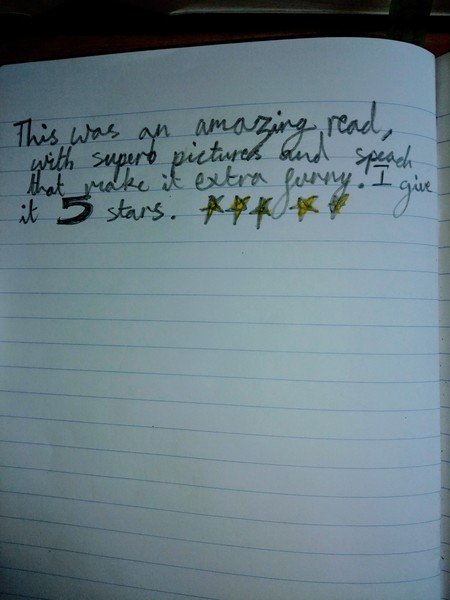 This was an amazing read,
with superb pictures and speach
that make it extra funny. I give
it 5 stars. ★★★★★